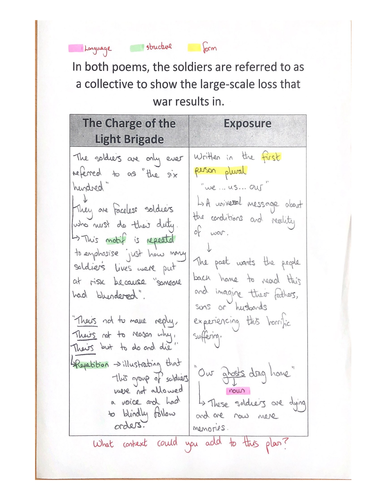 Language structure form
In both poems, the soldiers are referred to as
a collective to show the large-scale loss that
war results in.
The Charge of the
Light Brigade
The soldiers are only ever
referred to as "the six
hundred"
They are faceless soldiers
who must do their duty.
This motif is repeated
to emphasise just how many
soldiers lives were put
at risk because "someone
had blundered".
"Theirs not to make reply,
Theirs not to reason why,
Theirs but to do and die"
Repetition → illustrating that
this group of soldiers
were not allowed
a voice and had
to blindly follow
orders.
Exposure
Written in the first
person plural
"we ... us ... our"
↳ A universal message about
the conditions and reality
of war.
The poet wants the people
back home to read this
and imagine their fathers,
sons or husbands
experiencing this horrific
suffering.
"Our ghosts drag home"
noun
These soldiers are dying
and are now mere
memories.
What context could you add to this plan?